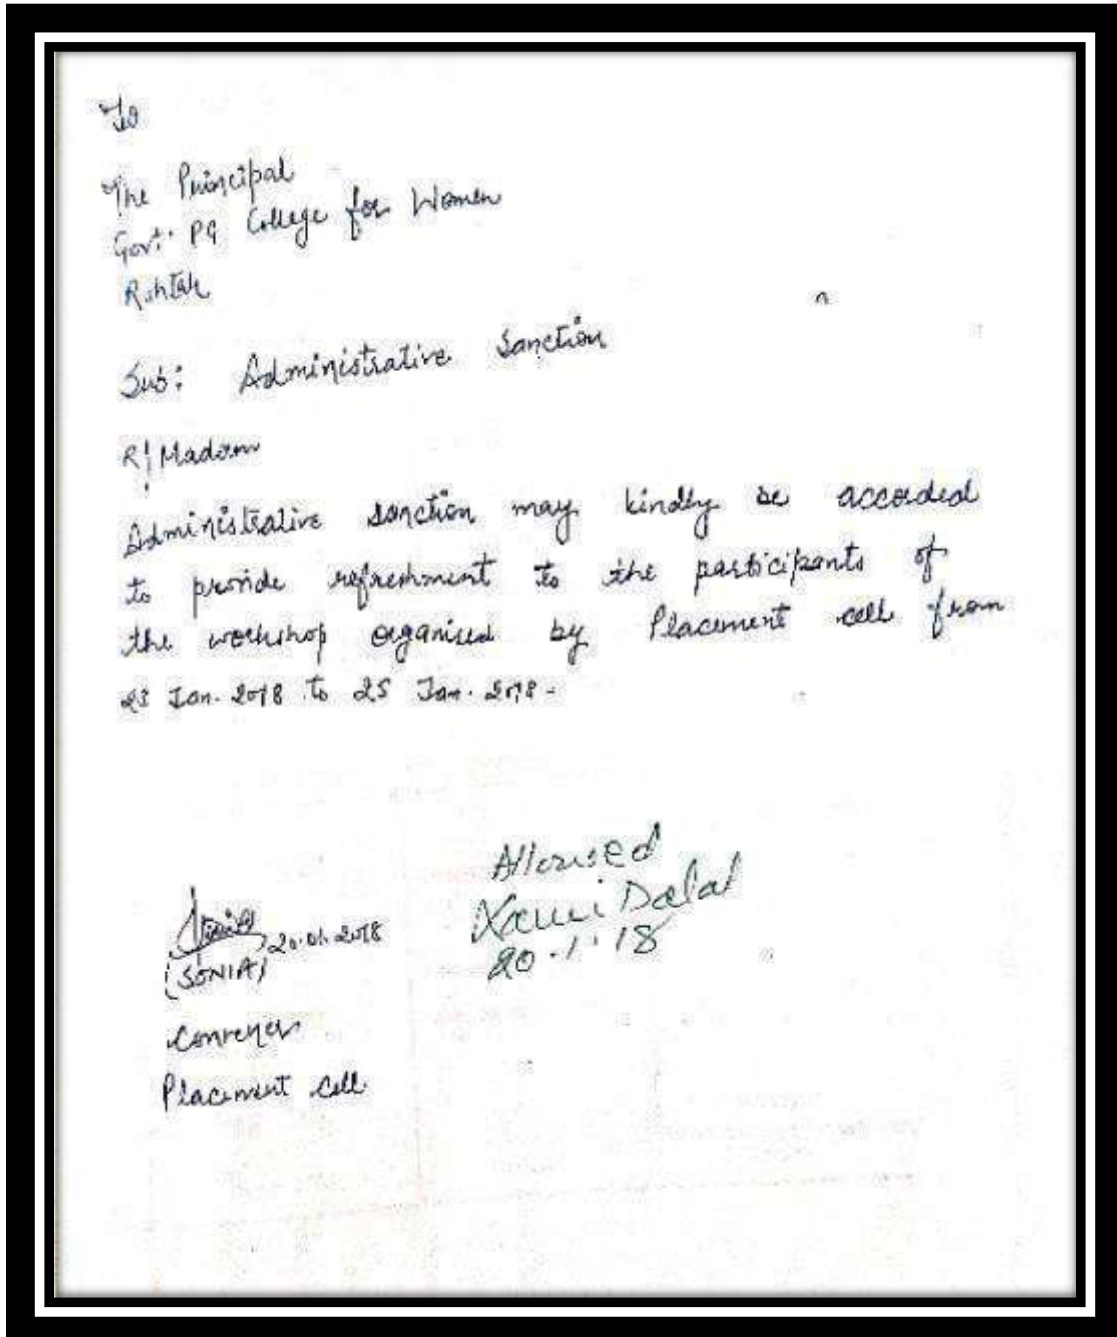 To
The Principal
Govt. PG College for Women
Rohtak
Sub: Administrative Sanction
R/Madam
Administrative sanction may kindly be accorded
to provide refreshment to the participants of
the workshop organised by Placement cell from
23 Jan. 2018 to 25 Jan. 2018.
Allowed
Dalal
20.1.18
20.01.2018
(SONIA)
Convener
Placement Cell